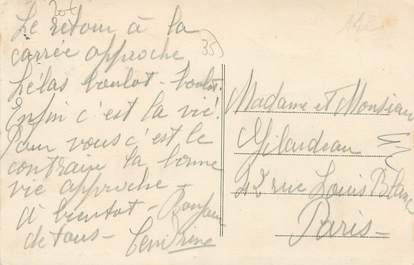 20f
Le retour à la
carrée approche
hélas boulot - boulot.
Enfin c'est la vie!
Pour vous c'est le
contraire la bonne
vie approche
à bientôt -
de tous -
35
Madame et Monsieur
42 rue Louis Blanc
Paris -